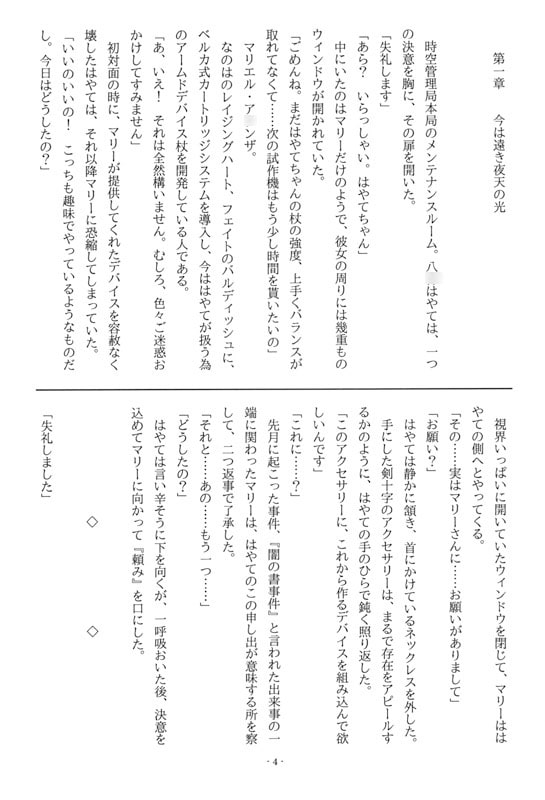 第一章　今は遠き夜天の光
時空管理局本局のメンテナンスルーム。八 はやては、一つ
の決意を胸に、その扉を開いた。
「失礼します」
「あら？　いらっしゃい。はやてちゃん」
中にいたのはマリーだけのようで、彼女の周りには幾重もの
ウィンドウが開かれていた。
「ごめんね。まだはやてちゃんの杖の強度、上手くバランスが
取れてなくて……次の試作機はもう少し時間を貰いたいの」
マリエル・ア ンザ。
なのはのレイジングハート、フェイトのバルディッシュに、
ベルカ式カートリッジシステムを導入し、今ははやてが扱う為
のアームドデバイス杖を開発している人である。
「あ、いえ！　それは全然構いません。むしろ、色々ご迷惑お
かけしてすみません」
初対面の時に、マリーが提供してくれたデバイスを容赦なく
壊したはやては、それ以降マリーに恐縮してしまっていた。
「いいのいいの！　こっちも趣味でやっているようなものだ
し。今日はどうしたの？」
視界いっぱいに開いていたウィンドウを閉じて、マリーはは
やての側へとやってくる。
「その……実はマリーさんに……お願いがありまして」
「お願い？」
はやては静かに頷き、首にかけているネックレスを外した。
手にした剣十字のアクセサリーは、まるで存在をアピールす
るかのように、はやての手のひらで鈍く照り返した。
「このアクセサリーに、これから作るデバイスを組み込んで欲
しいんです」
「これに……？」
先月に起こった事件、『闇の書事件』と言われた出来事の一
端に関わったマリーは、はやてのこの申し出が意味する所を察
して、二つ返事で了承した。
「それと……あの……もう一つ……」
「どうしたの？」
はやては言い辛そうに下を向くが、一呼吸おいた後、決意を
込めてマリーに向かって『頼み』を口にした。
◇　◇
「失礼しました」
- 4 -